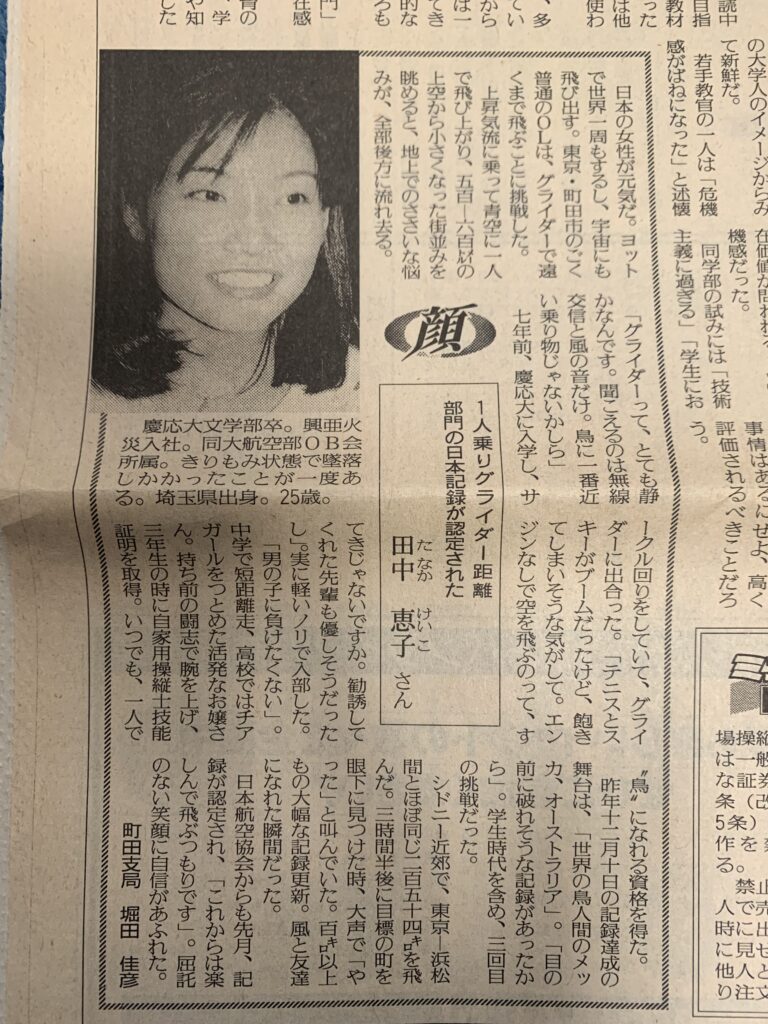 日本の女性が元気だ。ヨット
で世界一周もするし、宇宙にも
飛び出す。東京・町田市のごく
普通のOLは、グライダーで遠
くまで飛ぶことに挑戦した。
上昇気流に乗って青空に一人
で飛び上がり、五百—六百㍍の
上空から小さくなった街並みを
眺めると、地上でのささいな悩
みが、全部後方に流れ去る。
「グライダーって、とても静
かなんです。聞こえるのは無線
交信と風の音だけ。鳥に一番近
い乗り物じゃないかしら」
七年前、慶応大に入学し、サ
ークル回りをしていて、グライ
ダーに出合った。「テニスとス
キーがブームだったけど、飽き
てしまいそうな気がして。エン
ジンなしで空を飛ぶのって、す
てきじゃないですか。勧誘して
くれた先輩も優しそうだった
し」。実に軽いノリで入部した。
「男の子に負けたくない」。
中学で短距離走、高校ではチア
ガールをつとめた活発なお嬢さ
ん。持ち前の闘志で腕を上げ、
三年生の時に自家用操縦士技能
証明を取得。いつでも、一人で
〝鳥〟になれる資格を得た。
昨年十二月十日の記録達成の
舞台は、「世界の鳥人間のメッ
カ、オーストラリア」。「目の
前に破れそうな記録があったか
ら」。学生時代を含め、三回目
の挑戦だった。
シドニー近郊で、東京—浜松
間とほぼ同じ二百五十四㌔を飛
んだ。三時間半後に目標の町を
眼下に見つけた時、大声で「や
った」と叫んでいた。百㌔以上
もの大幅な記録更新。風と友達
になれた瞬間だった。
日本航空協会からも先月、記
録が認定され、「これからは楽
しんで飛ぶつもりです」。屈託
のない笑顔に自信があふれた。
町田支局　堀田　佳彦
顔
1人乗りグライダー距離
部門の日本記録が認定された
たなか　けいこ
田中　恵子さん
慶応大文学部卒。興亜火
災入社。同大航空部OB会
所属。きりもみ状態で墜落
しかかったことが一度あ
る。埼玉県出身。25歳。
の大学人のイメージからみ
て新鮮だ。
若手教官の一人は「危機
感がばねになった」と述懐
機感だった。
同学部の試みには「技術
主義に過ぎる」「学生にお
事情はあるにせよ、高く
評価されるべきことだろ
う。
場操縦
は一般
な証券
条（改
5条）
作を禁
る。
禁止
人で売
時に出
に見せ
他人と
り注文